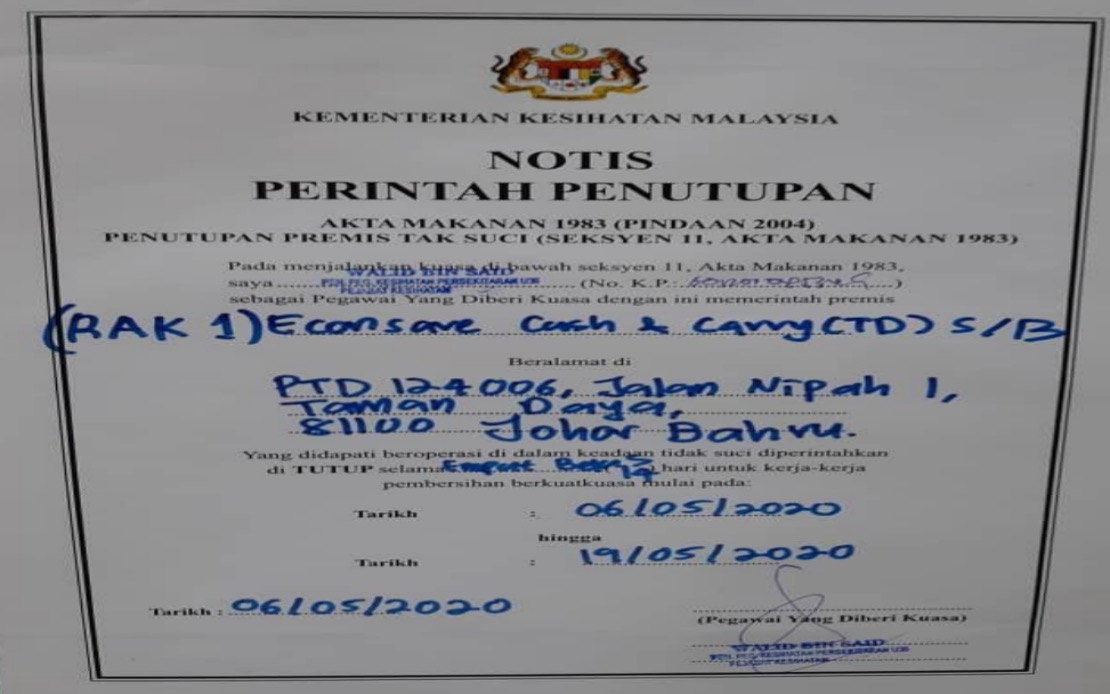 KEMENTERIAN KESIHATAN MALAYSIA
NOTIS
PERINTAH PENUTUPAN
AKTA MAKANAN 1983 (PINDAAN 2004)
PENUTUPAN PREMIS TAK SUCI (SEKSYEN 11, AKTA MAKANAN 1983)
Pada menjalankan kuasa di bawah seksyen 11, Akta Makanan 1983,
WALID BIN SAID
saya PEN. PEG. KESIHATAN PERSEKITARAN U36 (No. K.P. )
PEJABAT KESIHATAN
sebagai Pegawai Yang Diberi Kuasa dengan ini memerintah premis
(RAK 1) Econsave Cash & Carry (TD) S/B
Beralamat di
PTD 124006, Jalan Nipah 1,
Taman Daya,
81100 Johor Bahru.
Yang didapati beroperasi di dalam keadaan tidak suci diperintahkan
di TUTUP selama Empat Belas (14) hari untuk kerja-kerja
pembersihan berkuatkuasa mulai pada:
Tarikh : 06/05/2020
hingga
Tarikh : 19/05/2020
Tarikh : 06/05/2020
(Pegawai Yang Diberi Kuasa)
WALID BIN SAID
PEN. PEG. KESIHATAN PERSEKITARAN U36
PEJABAT KESIHATAN